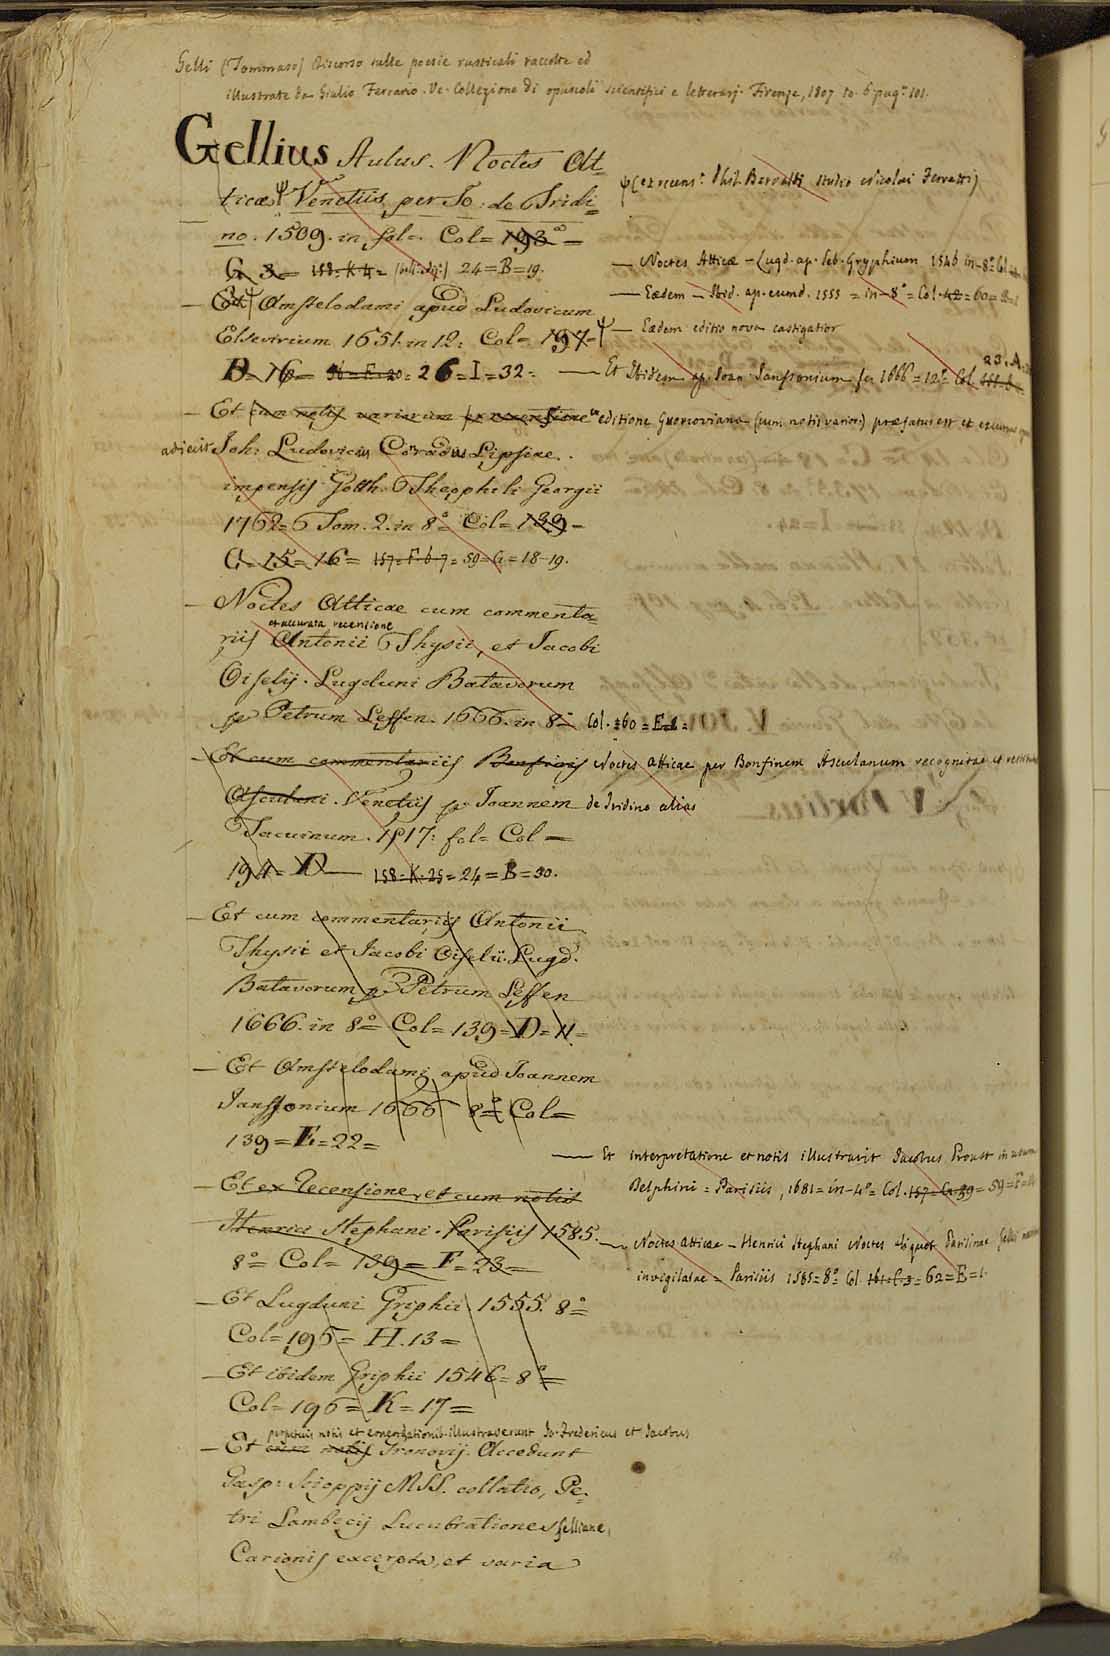 Gelli (Tommaso) Discorso sulle poesie rusticali raccolte ed
illustrate da Giulio Ferrario. Ve. Collezione di opuscoli scientifici e letterarj. Firenze, 1807 to. 6 pag. 101.
Gellius Aulus. Noctes At
ticæ Ψ Venetiis per Jo: de Tridi=
no. 1509. in fol=. Col= 193 =
G. 3= 158=K 4= 24=B=19.
Ψ (ex recens. Phil. Beroaldi studio Nicolai Ferretti)
— Noctes Atticæ – Lugd. ap. Seb. Gryphium 1546 in-8° Col
— Eædem – Ibid. ap. eumd. 1555 = in-8° = Col. 42 = 60=
— Ψ Amstelodami apud Ludovicum
Elsevirium 1651. in 12: Col= 197= Ψ
Ψ — Eædem editio nova castigatior
D=16= 26=I=32=
— Et Ibidem ap. Joan. Janssonium 1666=12° Col. 23.A.
— Et cum notis variorum ex recensione ex editione Gronoviana (cum notis varior.) præfatus est et excursus
adiecit Joh: Ludovicus Conradus Lipsiæ.
impensis Gotth. Theophili Georgii
1762= Tom. 2. in 8° Col= 139=
G=15=16= 157=F.6-7= 59=G=18-19.
— Noctes Atticæ cum commenta=
et accurata recensione
riis Antonii Thysii, et Jacobi
Oiselij. Lugduni Batavorum
Petrum Leffen. 1666. in 8= Col. 160=E.1=
— Et cum commentariis Bonfinis Noctes atticae per Bonfinem Asculanum recognitae et
Asculani. Venetiis p. Joannem de Tridino alias
Tacuinum. 1517: fol= Col=
194= D— 158=K.25= 24=B=30.
— Et cum commentariis Antonii
Thysii et Jacobi Oiselii. Lugd.
Batavorum p. Petrum Leffen
1666. in 8°= Col= 139=D=11=
— Et Amstelodami apud Joannem
Janssonium 1666 8°= Col=
139=E=22=
— Et interpretatione et notis illustravit Jacobus Proust in usum
Delphini = Parisiis, 1681=in-4°= Col. 157=G.39= 59=F=
— Et ex recensione, et cum notis
Henrici Stephani. Parisiis 1585.
8°= Col= 139= F=23=
— Noctes atticae – Henrici Stephani Noctes aliquot Parisinae
invigilatae = Parisiis 1585=8° Col. 62=E=1.
— Et Lugduni Griphii 1555. 8°=
Col=195= H.13=
— Et ibidem Griphii 1546=8°=
Col= 196= K=17=
perpetuis notis et emendationib. illustraverunt Jo. Fredericus et Jacobus
— Et cum notis Gronovij. Accedunt
Gasp: Scioppij MSS. collatio, Pe=
tri Lambecij Lucubrationes Gellianæ,
Carionis excerpta, et varia